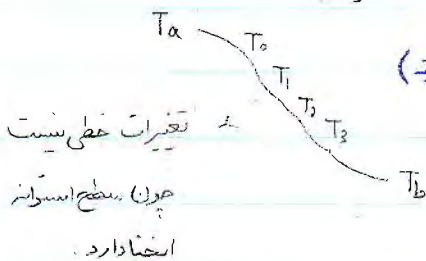 Ta
T₀
T₁
T₂
T₃
Tb
تغییرات خطی نیست
چون سطح استوانه
انحنا دارد.